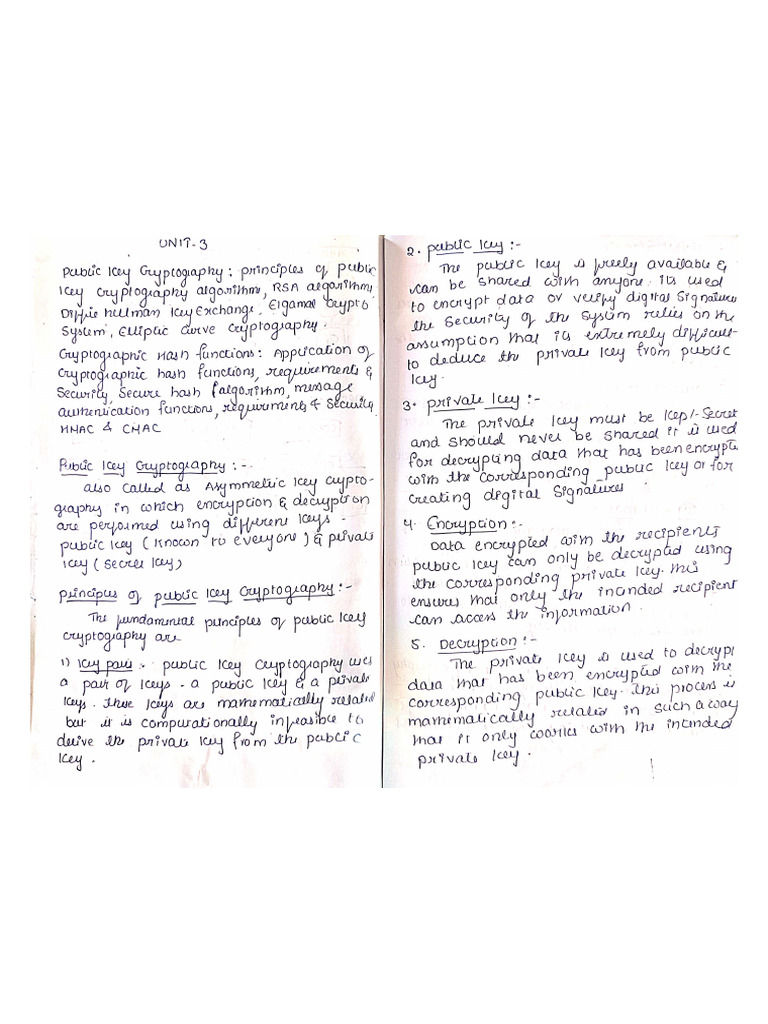 UNIT-3
Public Key Cryptography: principles of public
Key cryptography algorithms, RSA algorithm,
Diffie Hellman Key Exchange, Elgamal Crypto
System, Elliptic Curve Cryptography.
Cryptographic Hash functions: Application of
Cryptographic hash functions, requirements &
Security, Secure hash algorithm, message
authentication functions, requirements & Security
HMAC & CMAC
Public Key Cryptography :-
also called as Asymmetric Key Crypto-
graphy in which encryption & decryption
are performed using different Keys.
public Key (Known to everyone) & private
Key (Secret Key)
principles of public Key Cryptography :-
The fundamental principles of public Key
cryptography are
1) Key pairs. public Key Cryptography uses
a pair of Keys. a public Key & a private
Keys. These Keys are mathematically related
but it is computationally infeasible to
derive the private Key from the public
Key.
2. public Key :-
The public Key is freely available &
can be shared with anyone. its used
to encrypt data or verify digital Signatures
the Security of the System relies on the
assumption that its extremely difficult
to deduce the private Key from public
Key.
3. private Key :-
The private Key must be Kept Secret
and should never be shared it is used
for decrypting data that has been encrypte
with the corresponding public Key or for
creating digital Signatures
4. Encryption :-
Data encrypted with the recipients
public Key can only be decrypted using
the corresponding private Key. this
ensures that only the intended recipient
can access the information.
5. Decryption :-
The private Key is used to decrypt
data that has been encrypted with the
corresponding public Key. this process is
mathematically related in such a way
that it only works with the intended
private Key.